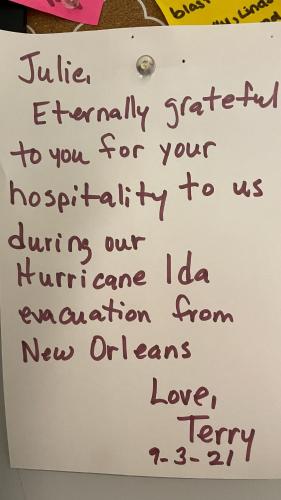 blast
lly, Linda
Julie,
Eternally grateful
to you for your
hospitality to us
during our
Hurricane Ida
evacuation from
New Orleans
Love,
Terry
9-3-21